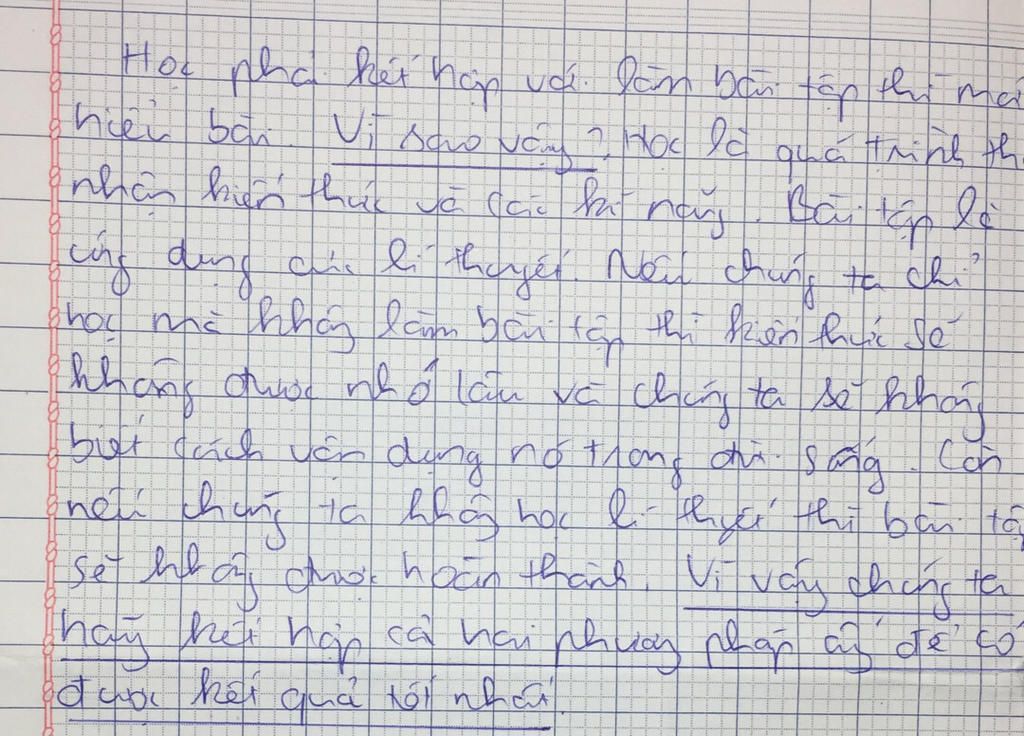 Học phải kết hợp với làm bài tập thì mới
hiểu bài. Vì sao vậy? Học là quá trình
nhận kiến thức và các kĩ năng. Bài tập là
ứng dụng của lí thuyết. Nếu chúng ta chỉ
học mà không làm bài tập thì kiến thức sẽ
không được nhớ lâu và chúng ta sẽ không
biết cách vận dụng nó trong đời sống. Còn
nếu chúng ta không học lí thuyết thì bài tập
sẽ không được hoàn thành. Vì vậy chúng ta
hãy kết hợp cả hai phương pháp ấy để có
được kết quả tốt nhất.